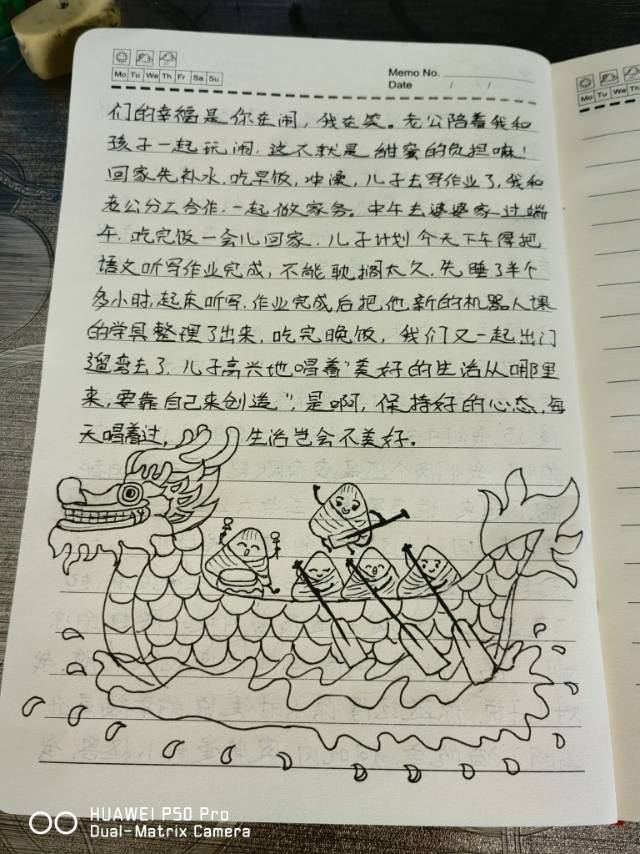 Mo Tu We Th Fr Sa Su
Memo No.
Date / /
们的幸福是你在闹，我在笑。老公陪着我和
孩子一起玩闹.这不就是甜蜜的负担嘛！
回家先补水.吃早饭，冲澡，儿子去写作业了，我和
老公分工合作.一起做家务。中午去婆婆家过端
午.吃完饭一会儿回家.儿子计划今天下午得把
语文听写作业完成，不能耽搁太久.先睡了半个
多小时,起床听写.作业完成后把他新的机器人课
的学具整理了出来，吃完晚饭，我们又一起出门
遛弯去了.儿子高兴地唱着"美好的生活从哪里
来，要靠自己来创造"，是啊，保持好的心态，每
天唱着过，生活岂会不美好。
Mo Tu We Th
HUAWEI P50 Pro
Dual-Matrix Camera